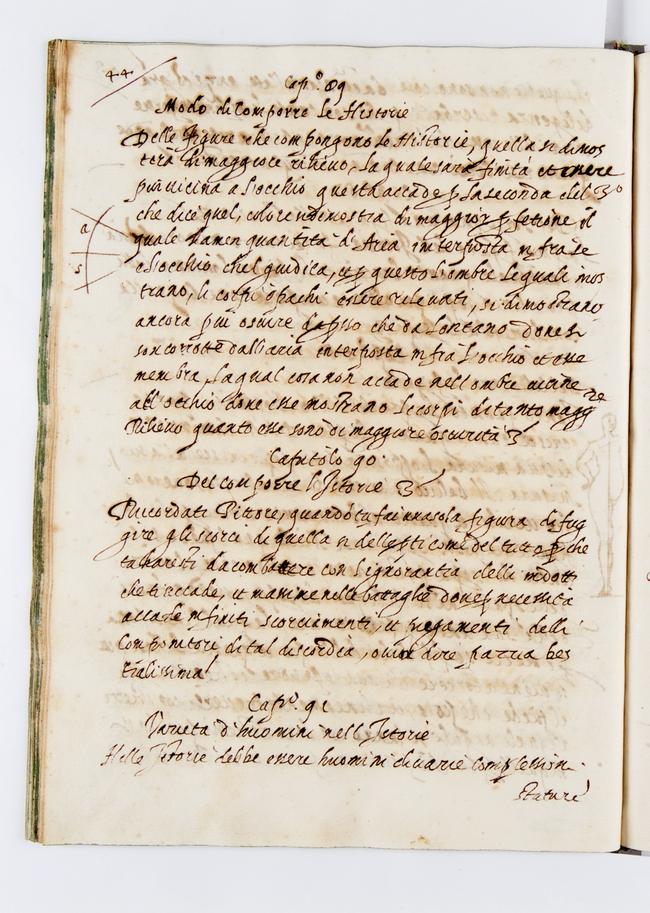 44
Cap.º 89
Modo di Comporre le Historie
Delle figure che compongono le Historie, quella si dimos
terà di maggiore rilievo, la quale sarà finta essere
più vicina a l'occhio questa accade p la seconda del 3º
che dice quel, colore si dimostra di maggior pfetione il
quale ha men quantità d'Area interposta infra se
e l'occhio che'l giudica, et p questo l'ombre le quali mos
trano, li corpi opachi essere relevati, si dimostrano
ancora più oscure dapsso che da lontano dove si
son corrotte dall'aria interposta infra l'occhio et esse
membra, la qual cosa non accade nell'ombre vicine
all'occhio dove esse mostrano le corpi di tanto magg re
Rilievo quanto esse sono di maggiore oscurità
a
s
Capitolo 90
Del comporre l'Istorie
Ricordati Pittore, quando tu fai una sola figura di fug
gire gli scorci di quella si delle pti come del tutto p che
tu haresti da combattere con l'ignorantia delli indotti
che ti accade, et massime nelle battaglie dove p necessità
accade infiniti scorciamenti, et piegamenti delli
Compositori di tal discordia, o vuoi dire pazzia bes
tialissima
Capº. 91
Varietà d'huomini nell'Istorie
Nelle Istorie debbe essere huomini di varie complession
stature